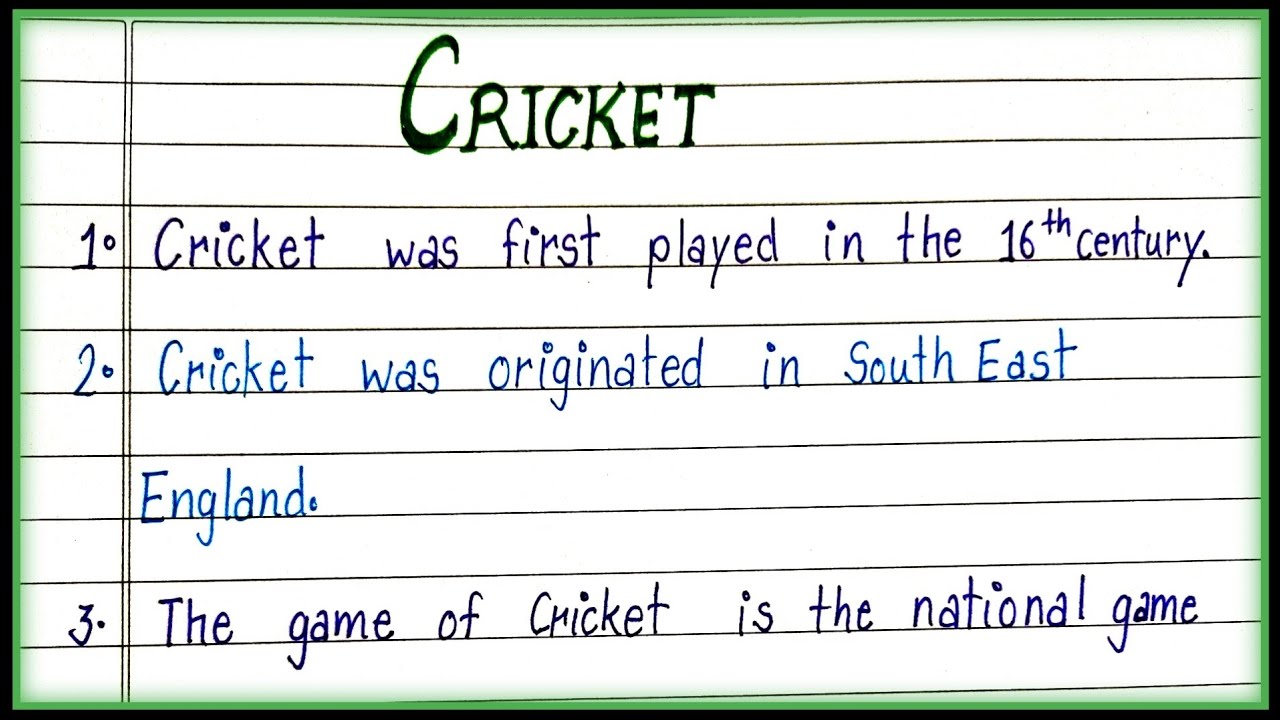 CRICKET
1. Cricket was first played in the 16th century.
2. Cricket was originated in South East
England.
3. The game of Cricket is the national game